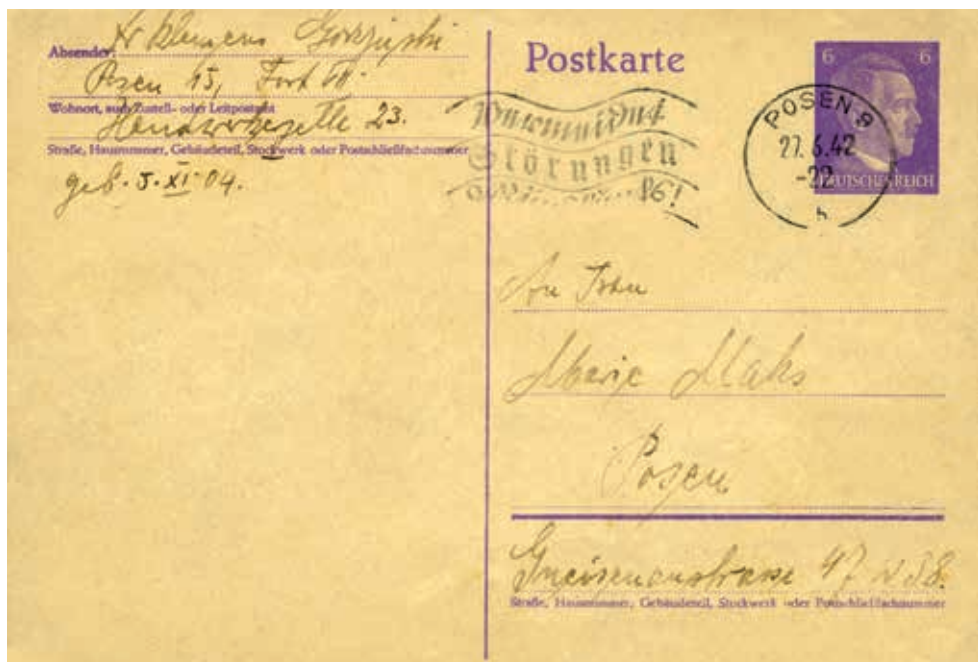 Absender: Klemens
Posen 15, Fort VII.
Wohnort, auch Zustell- oder Leitpostamt
23.
Straße, Hausnummer, Gebäudeteil, Stockwerk oder Postschließfachnummer
geb. 5. XI. 04.
Postkarte
6 6
DEUTSCHES REICH
POSEN
27.6.42
-22
Vermeidet
Störungen
An Frau
Marie Maks
Posen
Gneisenaustrasse 47
Straße, Hausnummer, Gebäudeteil, Stockwerk oder Postschließfachnummer